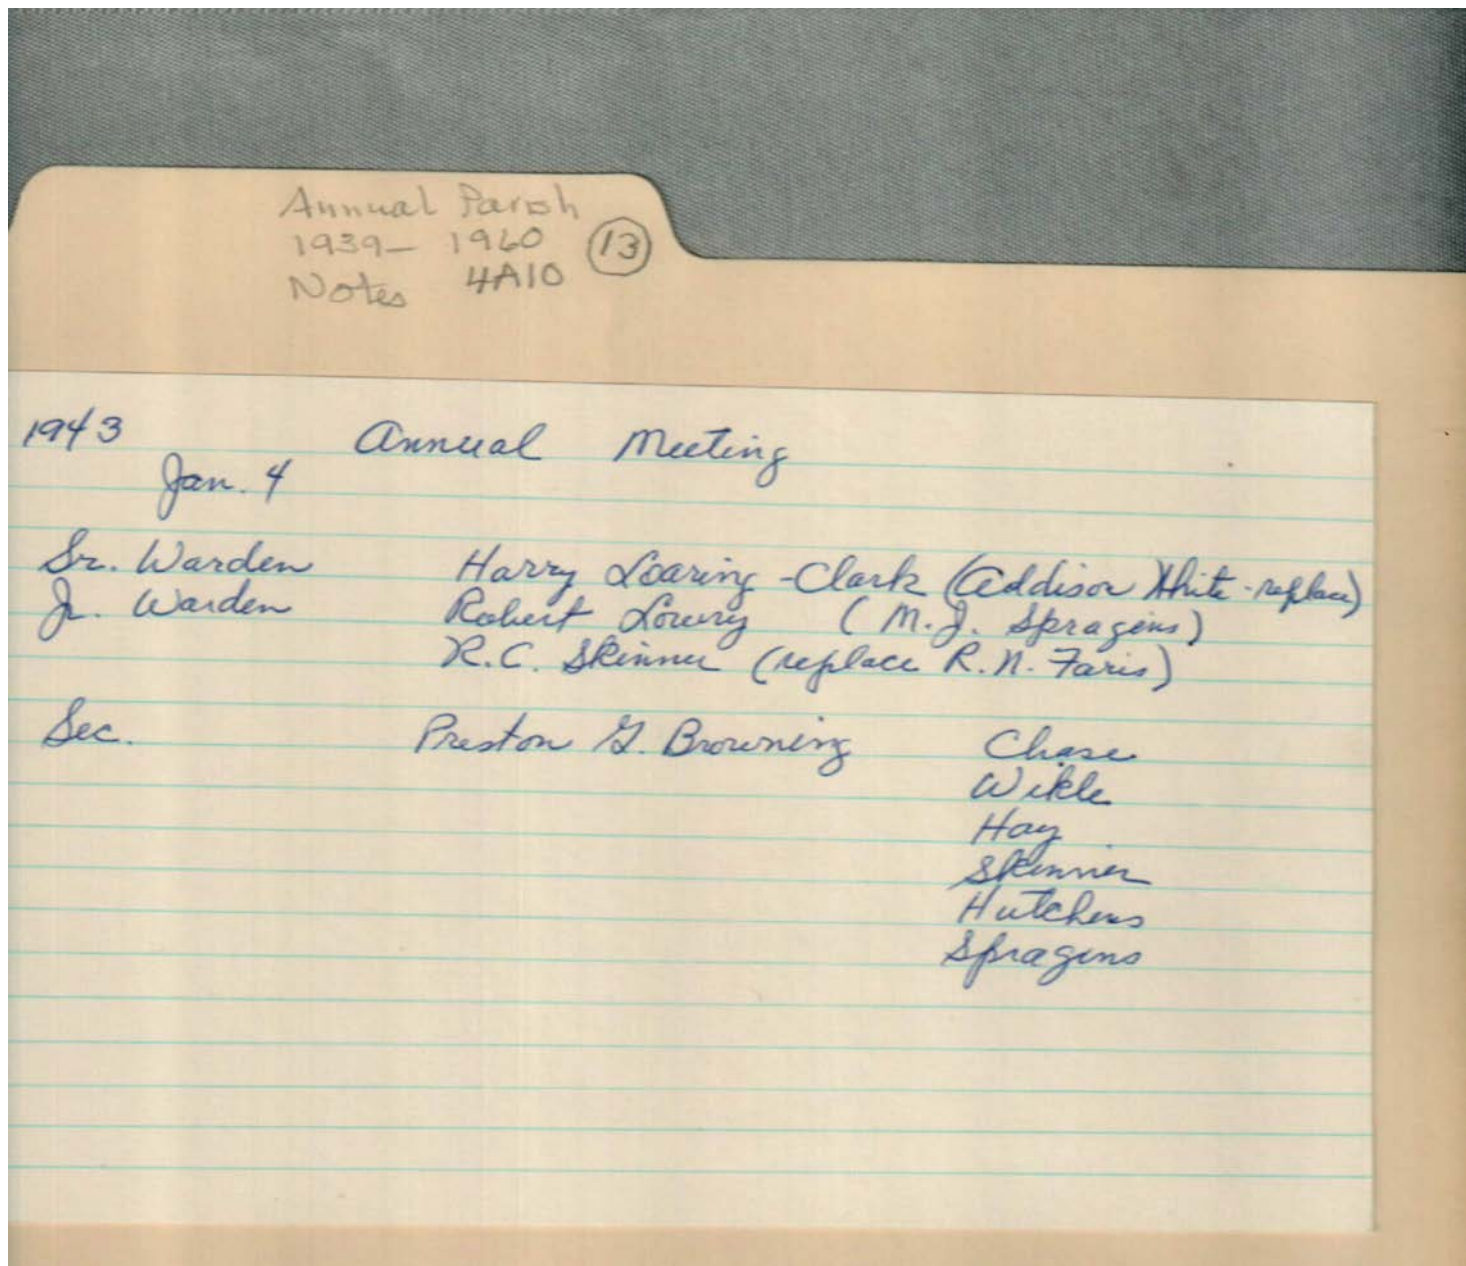 Annual Parish
1939- 1960 (13)
Notes 4A10
1943 Annual Meeting
Jan. 4
Sr. Warden Harry Loaring-Clark (Addison White-replace)
Jr. Warden Robert Lowry (M.J. Spragins)
R.C. Skinner (replace R.N. Faris)
Sec. Preston G. Browning Chase
Wikle
Hay
Skinner
Hutchens
Spragins